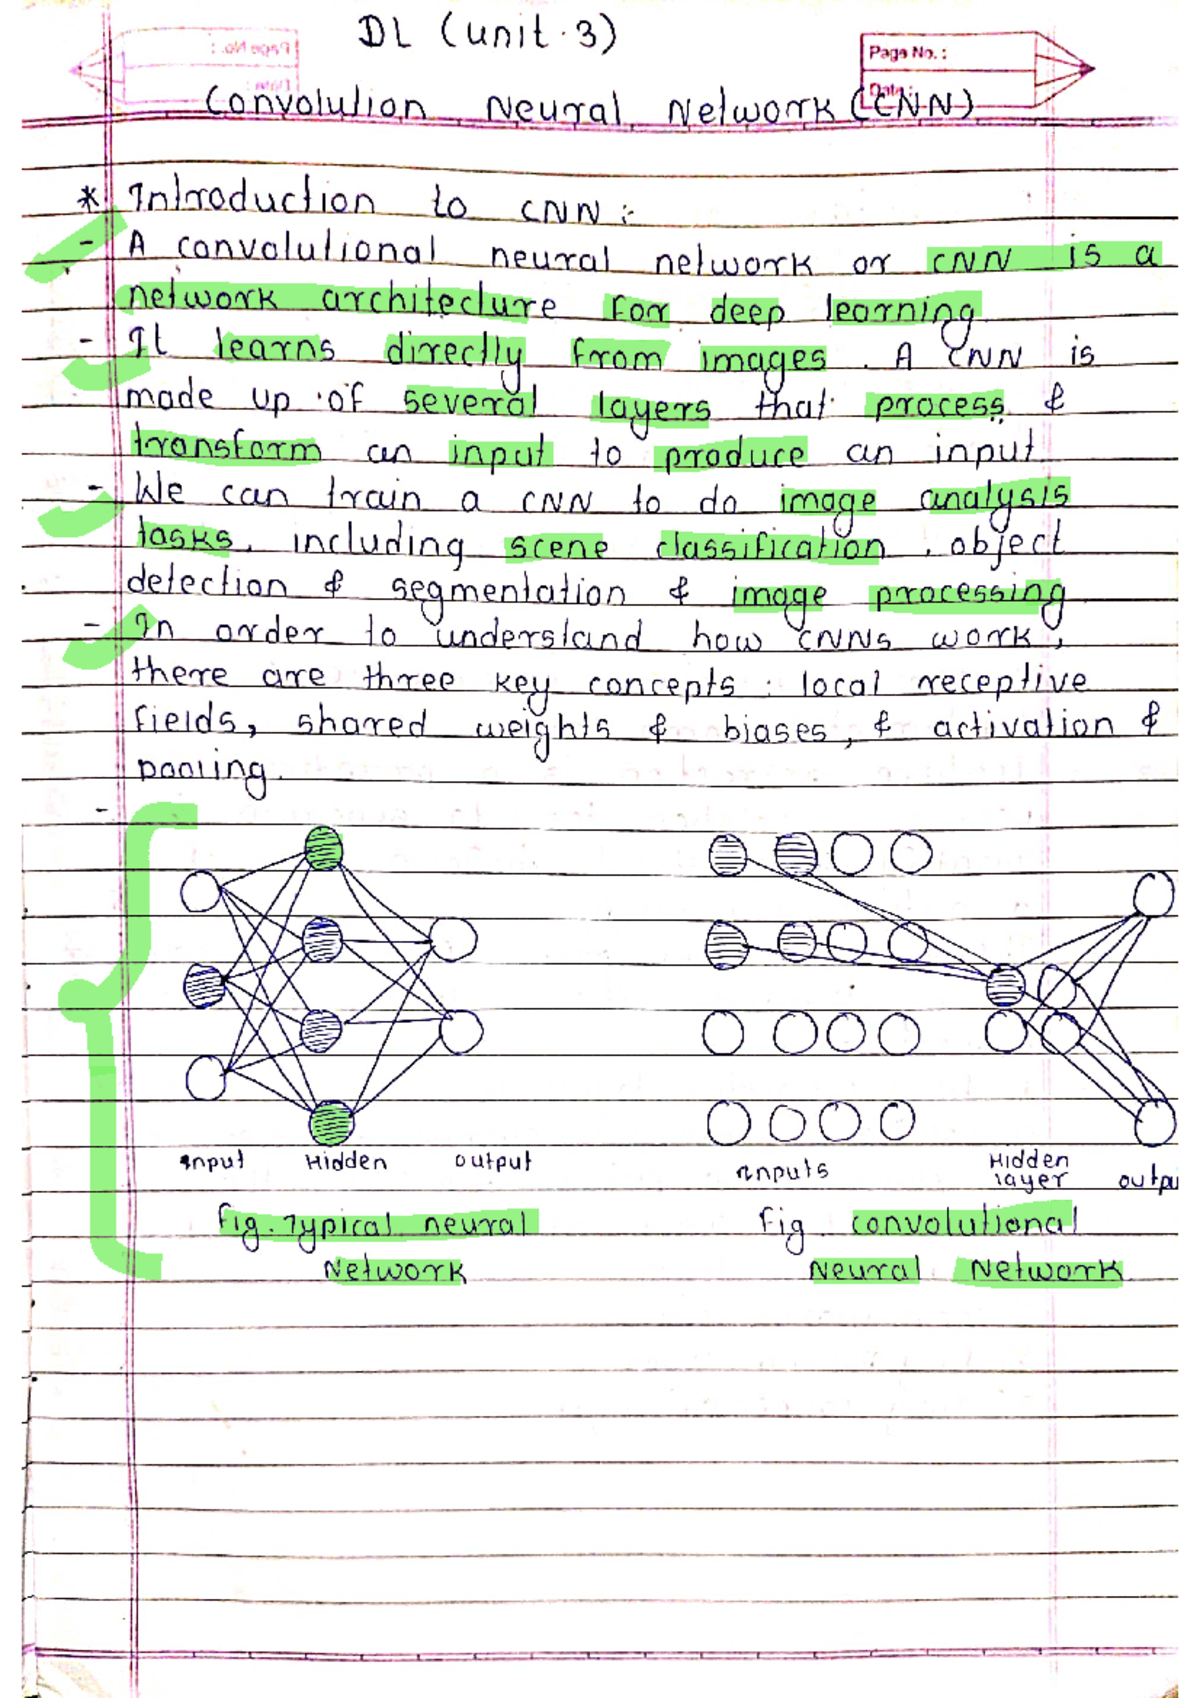 DL (unit. 3)
Page No. :
Convolution Neural Network (CNN)
* Introduction to CNN :-
- A convolutional neural network or CNN is a
network architecture for deep learning
- It learns directly from images. A CNN is
made up of several layers that process &
transform an input to produce an input
- We can train a CNN to do image analysis
tasks, including scene classification, object
detection & segmentation & image processing
- In order to understand how CNNs work,
there are three key concepts : local receptive
fields, shared weights & biases, & activation &
pooling.
Input Hidden output
Inputs Hidden layer outpu
fig. Typical neural Network
fig convolutional Neural Network